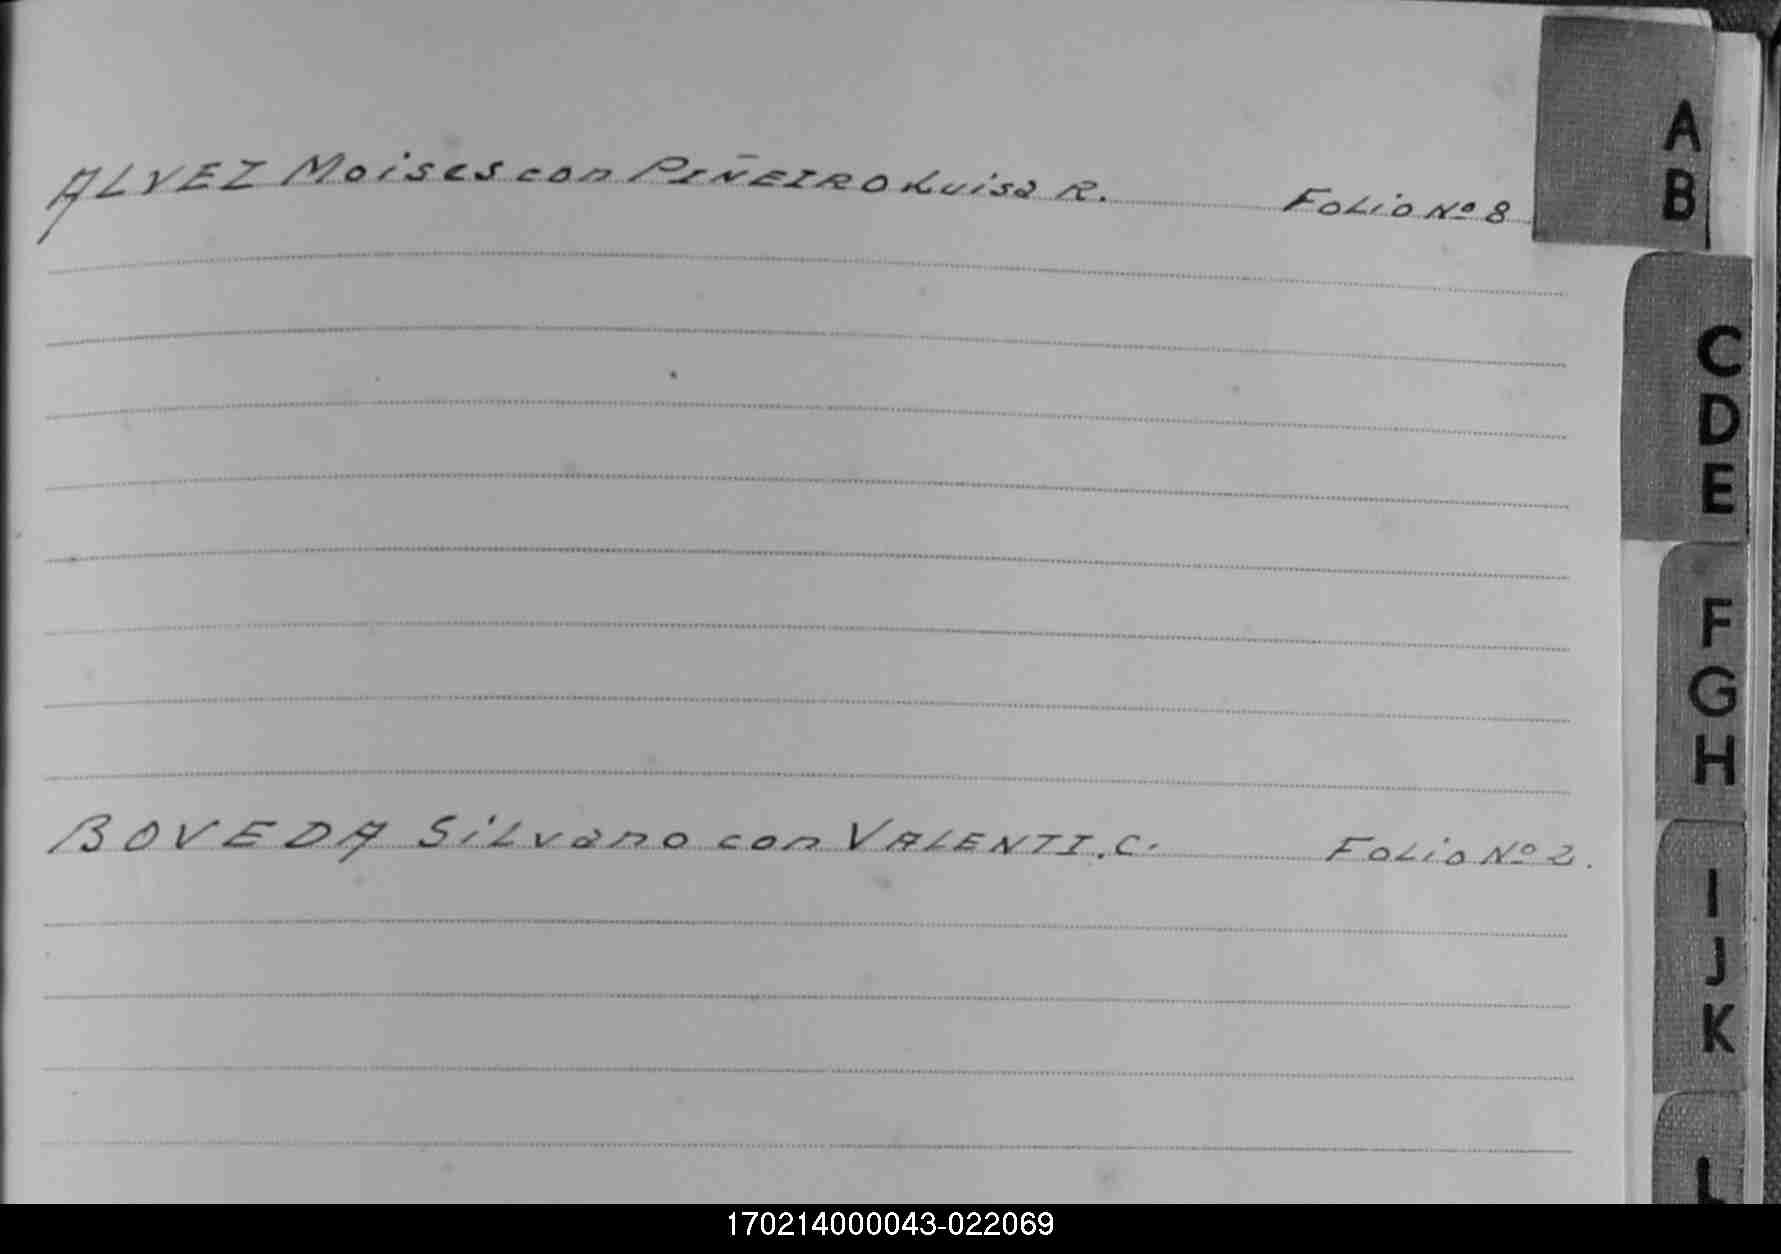 ALVEZ Moises con PIÑEIRO Luisa R. Folio Nº 8
BOVEDA Silvano con VALENTI. C. Folio Nº 2.
A
B
C
D
E
F
G
H
I
J
K
L
170214000043-022069